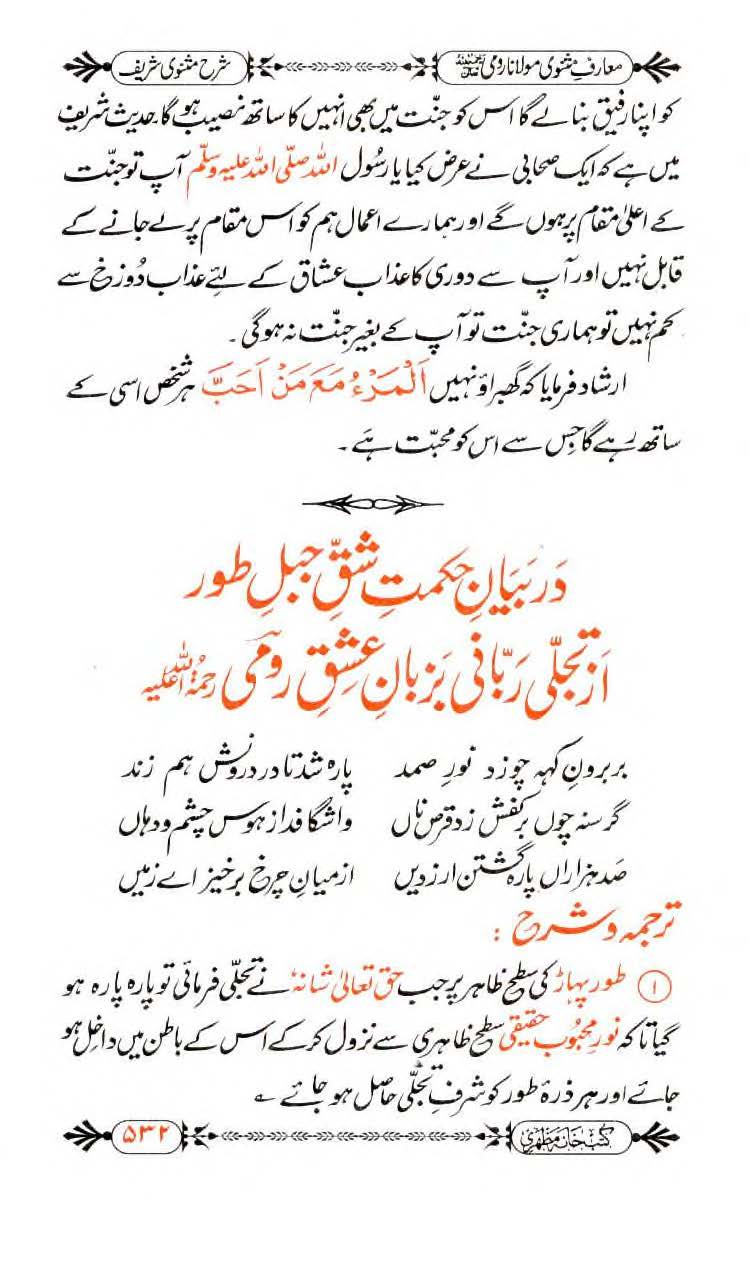 معارفِ مثنوی مولانا رومی
شرح مثنوی شریف
کو اپنا رفیق بنالے گا اس کو جنّت میں بھی انہیں کا ساتھ نصیب ہوگا۔حدیث شریف
میں ہے کہ ایک صحابی نے عرض کیا یا رسُول اللہ صلّی اللہ علیہ وسلّم آپ تو جنّت
کے اعلیٰ مقام پر ہوں گے اور ہمارے اعمال ہم کو اس مقام پر لے جانے کے
قابل نہیں اور آپ سے دوری کا عذاب عشاق کے لئے عذاب دُوزخ سے
کم نہیں تو ہماری جنّت تو آپ کے بغیر جنّت نہ ہوگی۔
ارشاد فرمایا کہ گھبراؤ نہیں اَلْمَرْءُ مَعَ مَنْ اَحَبَّ ہر شخص اسی کے
ساتھ رہے گا جِس سے اس کو محبّت ہَے۔
دَر بَیَانِ حِکمتِ شقِّ جبلِ طور
اَز تجلّی رَبّانی بَزبانِ عِشقِ رومی رحمۃُ اللہ علیہ
بر برونِ کہہ چو زد نورِ صمد پارہ شد تا در درونش ہم زند
گرسنہ چوں بر کفش زد قرص ناں وا شگافد از ہوس چشم و دہاں
صَد ہزاراں پارہ گشتن ارزدیں از میانِ چرخ برخیز اے زمیں
ترجمہ و شرح :
۱ طور پہاڑ کی سطح ظاہر پر جب حق تعالیٰ شانہٗ نے تجلّی فرمائی تو پارہ پارہ ہو
گیا تاکہ نورِ محبُوب حقیقی سطح ظاہری سے نزول کرکے اس کے باطن میں داخِل ہو
جائے اور ہر ذرۂ طور کو شرفِ تجلّی حاصل ہو جائے ؎
کتب خانہ مظہری
۵۳۲